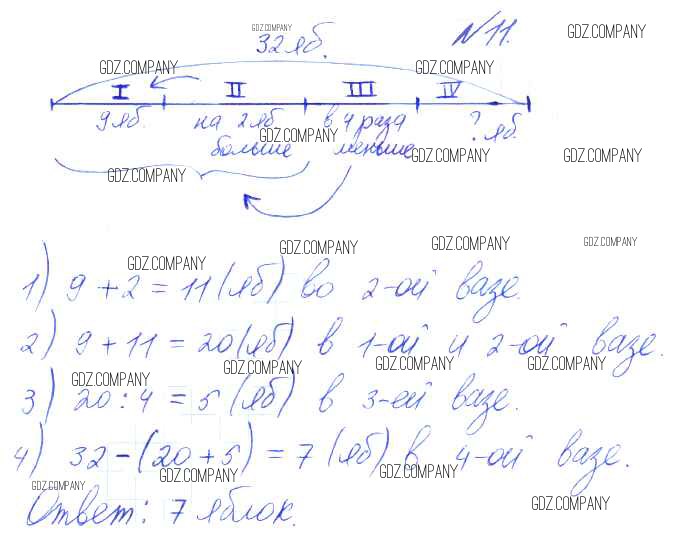 GDZ.COMPANY
N 11.
GDZ.COMPANY
32 яб.
GDZ.COMPANY GDZ.COMPANY
I II III IV
9 яб. на 2 яб. в 4 раза ? яб.
GDZ.COMPANY
больше меньше
GDZ.COMPANY GDZ.COMPANY
GDZ.COMPANY
GDZ.COMPANY GDZ.COMPANY GDZ.COMPANY
GDZ.COMPANY
1) 9 + 2 = 11 (яб) во 2-ой вазе.
2) 9 + 11 = 20 (яб) в 1-ой и 2-ой вазе.
GDZ.COMPANY GDZ.COMPANY GDZ.COMPANY
GDZ.COMPANY
3) 20 : 4 = 5 (яб) в 3-ей вазе.
4) 32 - (20 + 5) = 7 (яб) в 4-ой вазе.
GDZ.COMPANY GDZ.COMPANY
GDZ.COMPANY
Ответ: 7 яблок.
GDZ.COMPANY